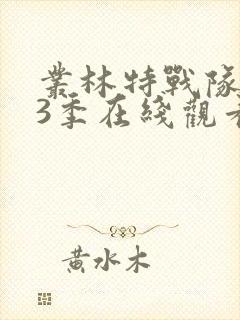 業林特戰隊
3季在綫觀看
黃水木